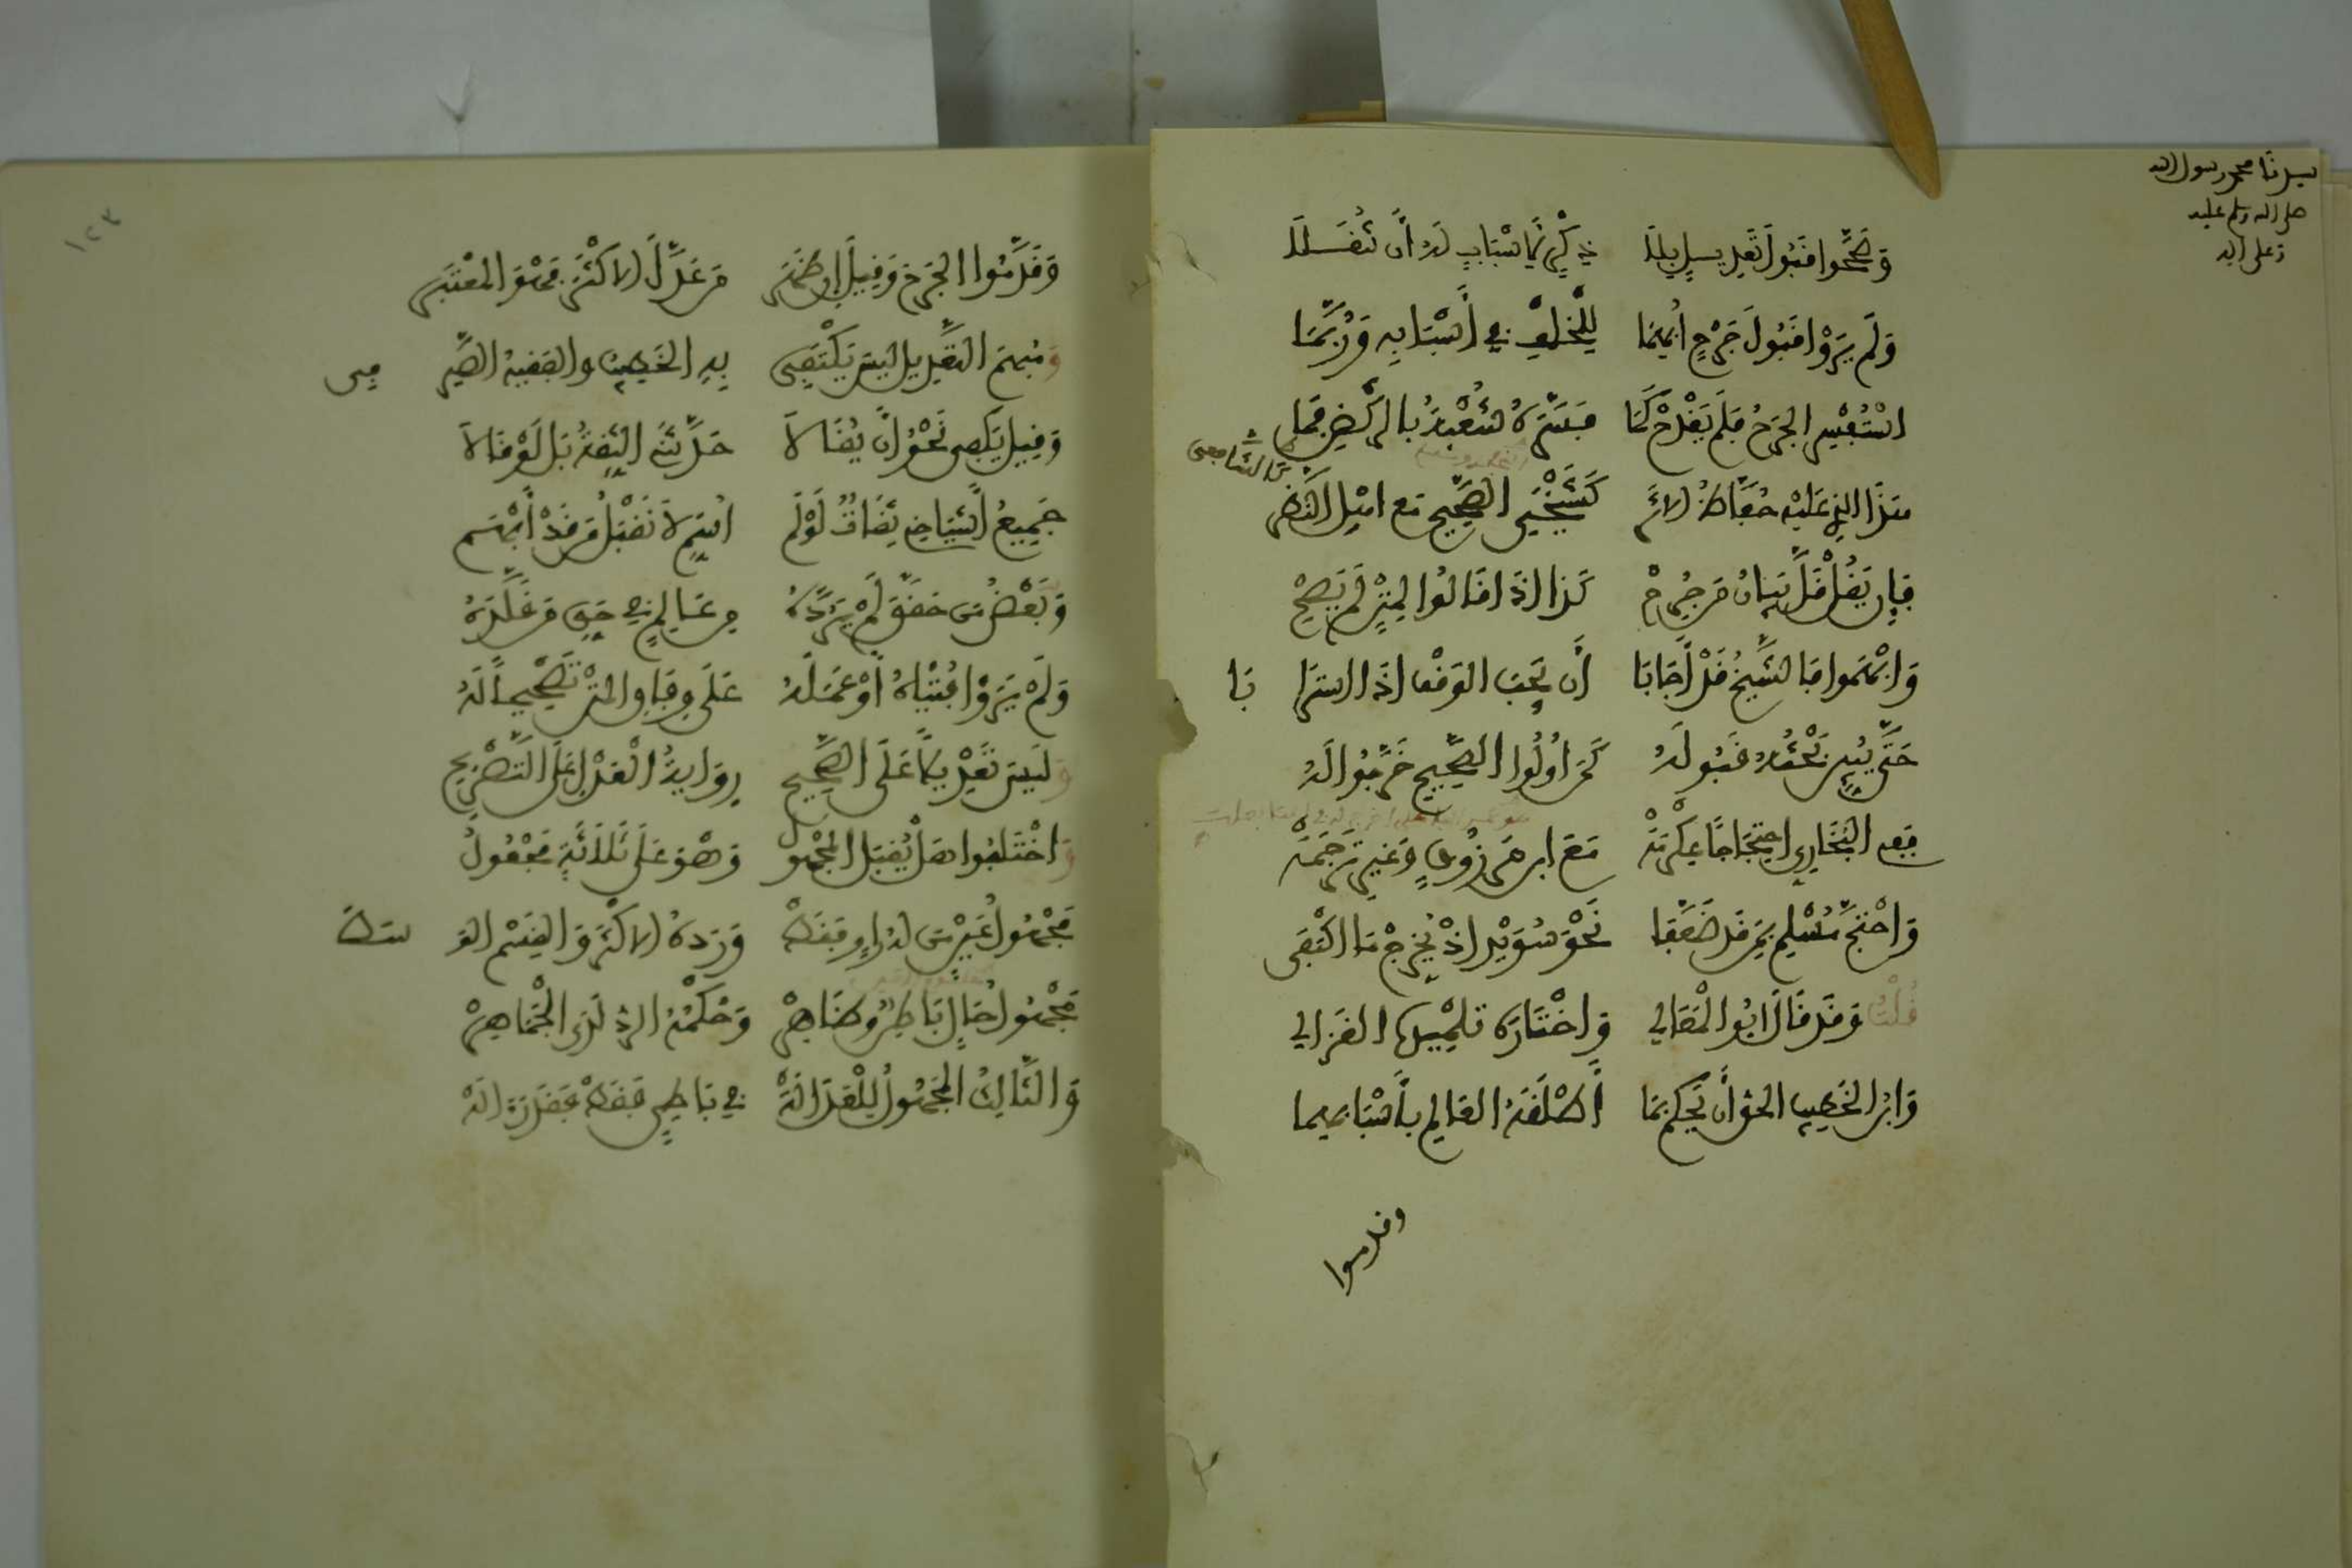 سيدنا محمد رسول الله
صلى الله وسلم عليه
وعلى اله
وَصَحَّحُوا قَبُولَ تَعْدِيلٍ بِلَا ذِكْرٍ لِأَسْبَابٍ لَهُ أَنْ تَثْقُلَا
وَلَمْ يَرَوْا قَبُولَ جَرْحٍ أُبْهِمَا لِلْخُلْفِ فِي أَسْبَابِهِ وَرُبَّمَا
اسْتُفْسِرَ الجَرْحُ فَلَمْ يَقْدَحْ كَمَا فَسَّرَهُ شُعْبَةُ بِالرَّكْضِ فَمَا
هَذَا الَّذِي عَلَيْهِ حُفَّاظُ الأَثَرْ كَشَيْخَيِ الصَّحِيحِ مَعَ أَهْلِ النَّظَرْ
فَإِنْ يُقَلْ قَلَّ بَيَانُ مَنْ جَرَحْ كَذَا إِذَا قَالُوا لِمَتْنٍ لَمْ يَصِحْ
وَأَبْهَمُوا فَالشَّيْخُ قَدْ أَجَابَا أَنْ يَجِبَ الوَقْفُ إِذَا اسْتَرَابَا
حَتَّى يُبِينَ بَحْثُهُ قَبُولَهُ كَمَنْ أُولُوا الصَّحِيحِ خَرَّجُوا لَهُ
فَفِي البُخَارِيِّ احْتِجَاجًا عِكْرِمَهْ مَعَ ابْنِ مَرْزُوقٍ وَغَيْرُ تَرْجَمَهْ
وَاحْتَجَّ مُسْلِمٌ بِمَنْ قَدْ ضُعِّفَا نَحْوَ سُوَيْدٍ إِذْ بِجَرْحٍ مَا اكْتَفَى
قُلْتُ وَقَدْ قَالَ أَبُو الْمَعَالِي وَاخْتَارَهُ تِلْمِيذُهُ الغَزَالِي
وَابْنُ الخَطِيبِ الحَقُّ أَنْ يُحْكَمَ بِمَا أَطْلَقَهُ العَالِمُ بِأَسْبَابِهِمَا
وقدموا
١٢٣
وَقَدَّمُوا الجَرْحَ وَقِيلَ إِنْ ظَهَرْ مَنْ عَدَّلَ الأَكْثَرُ فَهْوَ الْمُعْتَبَرْ
وَمُبْهَمُ التَّعْدِيلِ لَيْسَ يَكْتَفِي بِهِ الخَطِيبُ وَالفَقِيهُ الصَّيْرَفِي
وَقِيلَ يَكْفِي نَحْوُ أَنْ يُقَالَا حَدَّثَنِي الثِّقَةُ بَلْ لَوْ قَالَا
جَمِيعُ أَشْيَاخِي ثِقَاتٌ لَوْ لَمْ أُسَمِّ لَا نَقْبَلُ مَنْ قَدْ أَبْهَمْ
وَبَعْضُ مَنْ حَقَّقَ لَمْ يَرُدَّهُ مِنْ عَالِمٍ فِي حَقِّ مَنْ قَلَّدَهُ
وَلَمْ يَرَوْا فُتْيَاهُ أَوْ عَمَلَهُ عَلَى وِفَاقِ المَتْنِ تَصْحِيحًا لَهُ
وَلَيْسَ تَعْدِيلًا عَلَى الصَّحِيحِ رِوَايَةُ العَدْلِ عَلَى التَّصْرِيحِ
وَاخْتَلَفُوا هَلْ يُقْبَلُ المَجْهُولُ وَهْوَ عَلَى ثَلَاثَةٍ مَجْعُولُ
مَجْهُولُ عَيْنٍ مَنْ لَهُ رَاوٍ فَقَطْ وَرَدَّهُ الأَكْثَرُ وَالقِسْمُ الوَسَطْ
مَجْهُولُ حَالٍ بَاطِنٌ وَظَاهِرْ وَحُكْمُهُ الرَّدُّ لَدَى الْجَمَاهِرْ
وَالثَّالِثُ المَجْهُولُ لِلْعَدَالَهْ فِي بَاطِنٍ فَقَطْ فَقَدْ رَأَى لَهْ